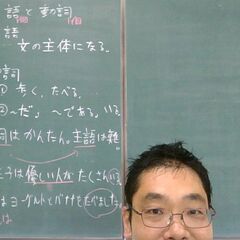 語と動詞
語
文の主体になる。
詞
① 歩く、たべる。
② ～だ。 ～である。いる。
詞はかんたん。主語は難。
子は優しい人がたくさんいる。
はヨーグルトとバナナをたべました。
は